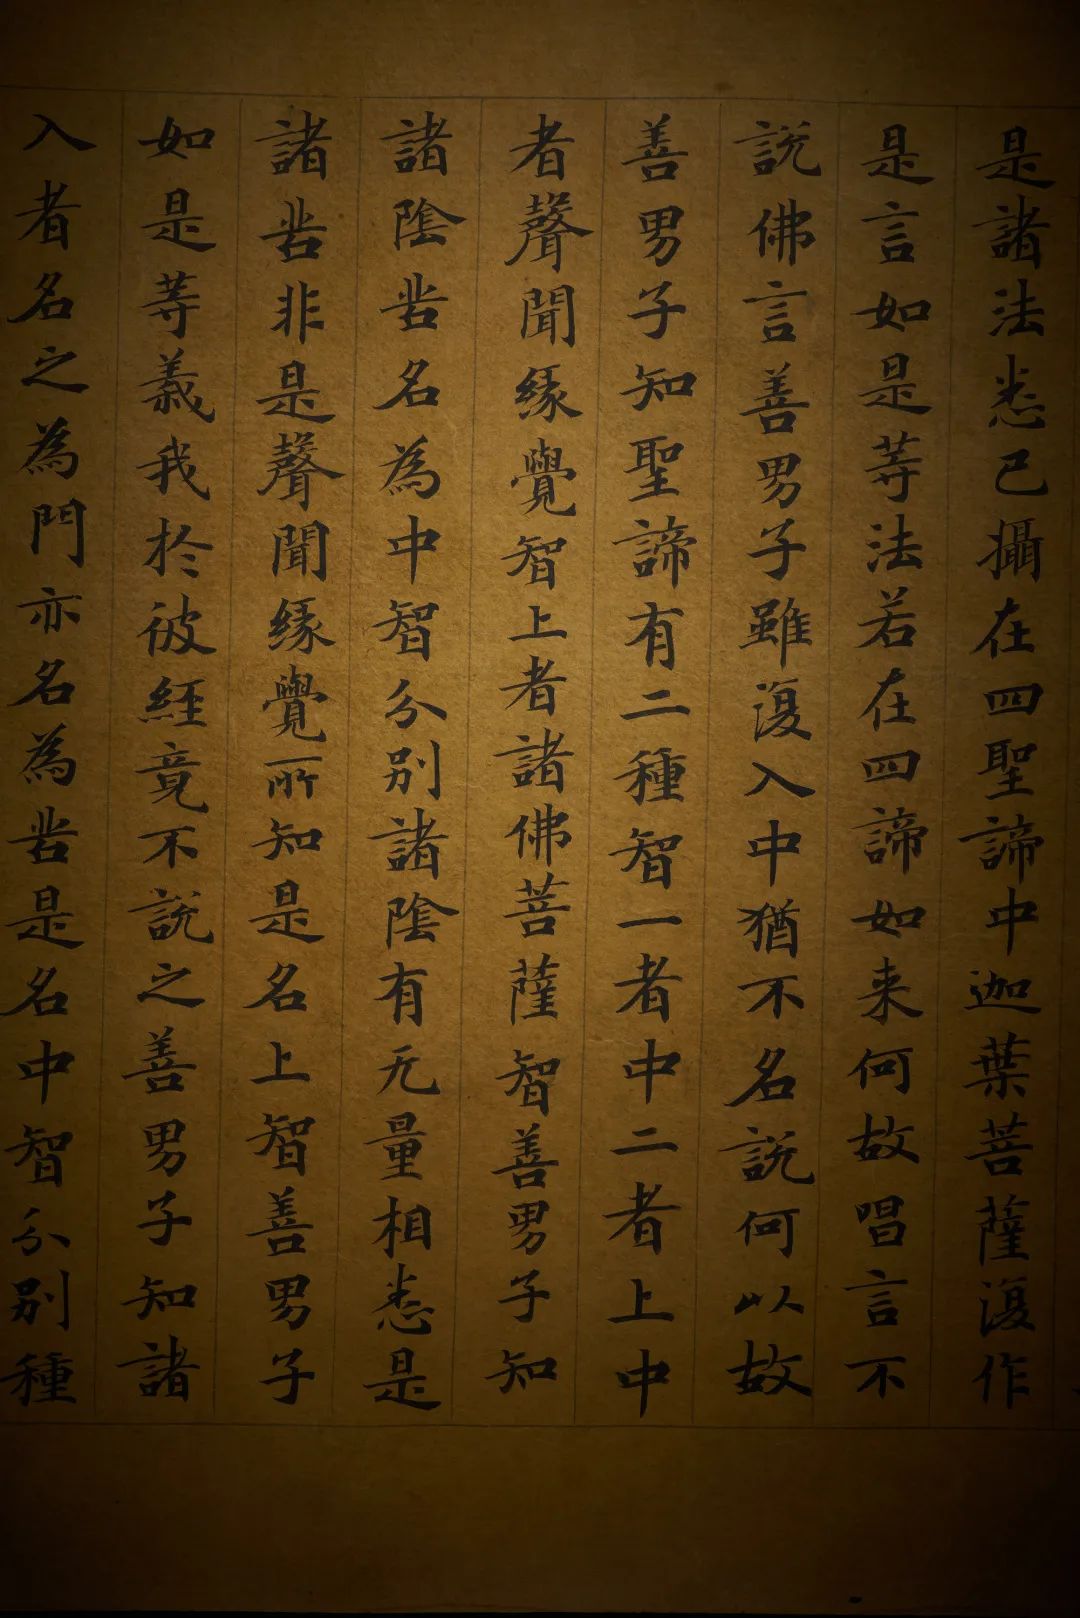 是諸法悉已攝在四聖諦中迦葉菩薩復作
是言如是等法若在四諦如来何故唱言不
說佛言善男子雖復入中猶不名說何以故
善男子知聖諦有二種智一者中二者上中
者聲聞緣覺智上者諸佛菩薩智善男子知
諸陰苦名為中智分别諸陰有无量相悉是
諸苦非是聲聞緣覺所知是名上智善男子
如是等義我於彼經竟不說之善男子知諸
入者名之為門亦名為苦是名中智分别種